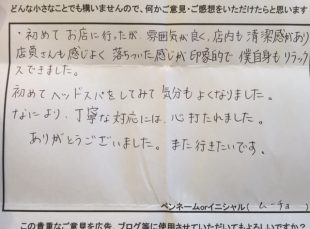 どんな小さなことでも構いませんので、何かご意見・ご感想をいただけたらと思います
・初めてお店に行ったが、雰囲気が良く、店内も清潔感があり
店員さんも感じよく落ちついた感じが印象的で僕自身もリラック
スできました。
初めてヘッドスパをしてみて気分もよくなりました。
なにより、丁寧な対応には、心打たれました。
ありがとうございました。また行きたいです。
ペンネームorイニシャル(ムーチョ)
この貴重なご意見を広告、ブログ等に使用させていただいてもよろしいですか?